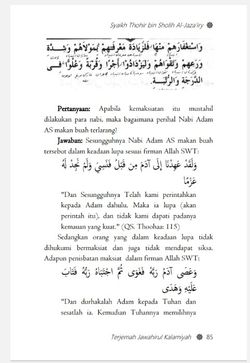 Syaikh Thohir bin Sholih Al-Jaza'iry
وَاسْتِغْفَارُهُمْ مِنْهَا فَلِزِيَادَةِ مَعْرِفَتِهِمْ بِمَوْلَاهُمْ وَشِدَّةِ
وَرَعِهِمْ وَتَقْوَاهُمْ وَلِيَزْدَادُوا أَجْرًا وَقُرْبَةً وَعُلُوًّا فِى
الدَّرَجَةِ وَالرُّتْبَةِ.
Pertanyaan: Apabila kemaksiatan itu mustahil
dilakukan para nabi, maka bagaimana perihal Nabi Adam
AS makan buah terlarang?
Jawaban: Sesungguhnya Nabi Adam AS makan buah
tersebut dalam keadaan lupa sesuai firman Allah SWT:
وَلَقَدْ عَهِدْنَا إِلَى آدَمَ مِن قَبْلُ فَنَسِيَ وَلَمْ نَجِدْ لَهُ
عَزْمًا
"Dan Sesungguhnya Telah kami perintahkan
kepada Adam dahulu, Maka ia lupa (akan
perintah itu), dan tidak kami dapati padanya
kemauan yang kuat." (QS. Thoohaa: 115)
Sedangkan orang yang dalam keadaan lupa tidak
dihukumi bermaksiat dan juga tidak mendapat siksa.
Adapun penisbatan maksiat dalam firman Allah SWT:
وَعَصَى آدَمُ رَبَّهُ فَغَوَى ثُمَّ اجْتَبَاهُ رَبُّهُ فَتَابَ
عَلَيْهِ وَهَدَى
"Dan durhakalah Adam kepada Tuhan dan
sesatlah ia. Kemudian Tuhannya memilihnya
Terjemah Jawahirul Kalamiyah 85